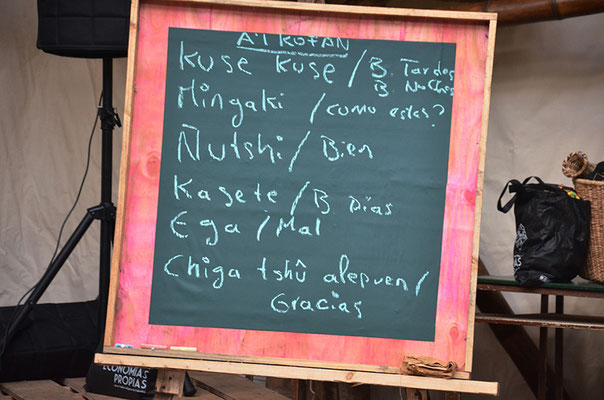 A'I KOFAN
Kuse Kuse / B. Tardes
B. Noches
Mingaki / como estas?
Ñutshi / Bien
Kasete / B Días
Ega / Mal
Chiga tshû alepuen /
Gracias
ECONOMÍAS
PROPIAS